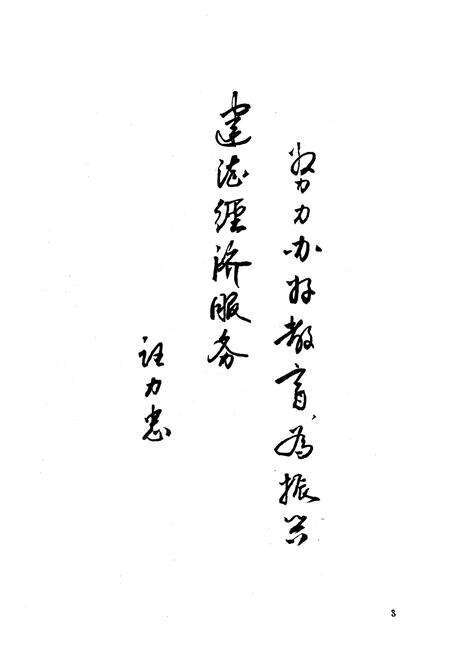 努力办好教育,为振兴
建德经济服务
汪力忠
3